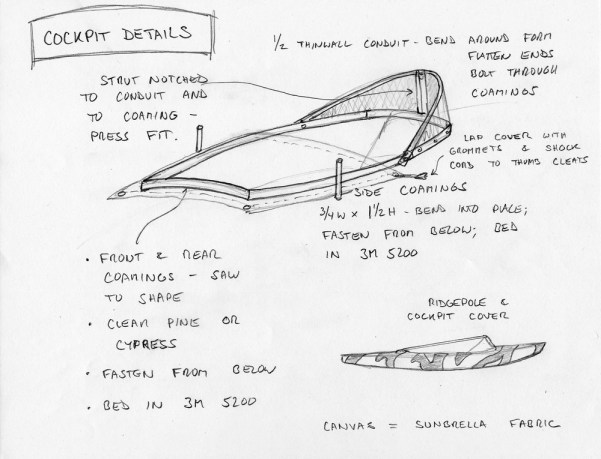 COCKPIT DETAILS
1/2 THINWALL CONDUIT - BEND AROUND FORM
FLATTEN ENDS
BOLT THROUGH
COAMINGS
STRUT NOTCHED
TO CONDUIT AND
TO COAMING -
PRESS FIT.
LAP COVER WITH
GROMMETS & SHOCK
CORD TO THUMB CLEATS
SIDE COAMINGS
3/4 W x 1 1/2 H - BEND INTO PLACE;
FASTEN FROM BELOW; BED
IN 3M 5200
• FRONT & REAR
COAMINGS - SAW
TO SHAPE
• CLEAR PINE OR
CYPRESS
• FASTEN FROM BELOW
• BED IN 3M 5200
RIDGEPOLE &
COCKPIT COVER
CANVAS = SUNBRELLA FABRIC